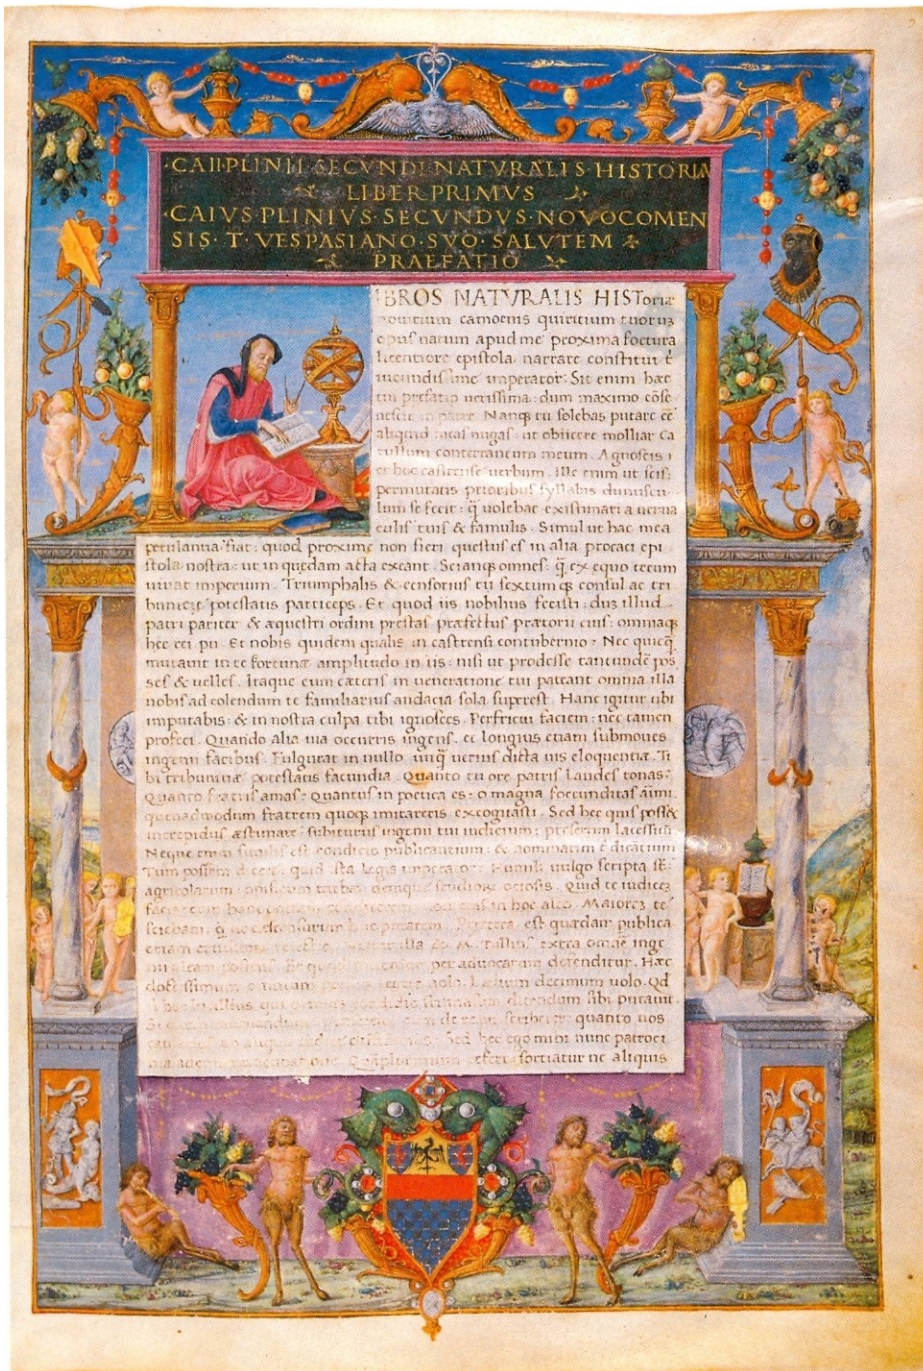 CAII·PLINII·SECVNDI·NATVRALIS HISTORIA
LIBER·PRIMVS
CAIVS·PLINIVS·SECVNDVS·NOVOCOMEN
SIS·T·VESPASIANO·SVO·SALVTEM
PRAEFATIO
IBROS NATVRALIS HISToriæ
camoenis quiritium
opus natum apud me proxima foetura
licentiore epistola narrare constitui
imperator. Sit enim hæc
tui prefatio uerissima: dum maximo cōse
nescit in patre. Nanq; tu solebas putare eē
aliquid meas nugas: ut obiicere molliar Ca
tullum conterraneum meum. Agnoscis
et hoc castrense uerbum. Ille enim ut scis:
permutatis prioribus syllabis duriuscu
lum se fecit: q̄ uolebat existimari a uerna
culis tuis & famulis. Simul ut hac mea
petulantia fiat: quod proxime non fieri questus es in alia procaci epi
stola nostra: ut in quędam acta exeant. Sciantq; omnes: q̄ ex equo tecum
uiuat imperium. Triumphalis & censorius tu sextumq; consul ac tri
bunicię potestatis particeps. Et quod iis nobilius fecisti: dum illud
patri pariter & æquestri ordini prestas præfectus prætorii eius: omniaq;
hec rei pu. Et nobis quidem qualis in castrensi contubernio? Nec quicq̄
mutauit in te fortunæ amplitudo in iis: nisi ut prodesse tantundē pos
ses & uelles. Itaque cum cæteris in ueneratione tui pateant omnia illa
nobis ad colendum te familiarius audacia sola superest. Hanc igitur tibi
imputabis: & in nostra culpa tibi ignosces. Perfricui faciem: nec tamen
profeci. Quando alia uia occurris ingens. et longius etiam submoues
ingenii facibus. Fulgurat in nullo unq̄ uerius dicta uis eloquentiæ. Ti
bi tribunitiæ potestatis facundia. Quanto tu ore patris laudes tonas?
Quanto fratris amas? Quantus in poetica es? o magna foecunditas aīmi.
quemadmodum fratrem quoq; imitareris excogitasti. Sed hec quis posset
intrepidus æstimare? subiturus ingenii tui iudicium: presertim lacessitū
Neque enim similis est condicio publicantium: & nominatim t̄ dicātium
Tum possem dicere: quid ista legis imperator? Humili uulgo scripta sūt:
agricolarum: opificum turbæ: denique studiorū ociosis. Quid te iudicem
facis? cum hanc operam in hoc albo. Maiorem te
sciebam: descensurum huc putarem. Preterea est quædam publica
etiam eruditorum M. Tullius extra omnē inge
nii aleam positus. Et per aduocatum defenditur. Hæc
doctissimum legere nolo. Lælium decimum uolo. Qd
Lucilius qui primus condidit stili nasum dicendum sibi putauit.
de repu. scriberet: quanto nos
Sed hec ego mihi nunc patroci
sortiatur ne aliquis